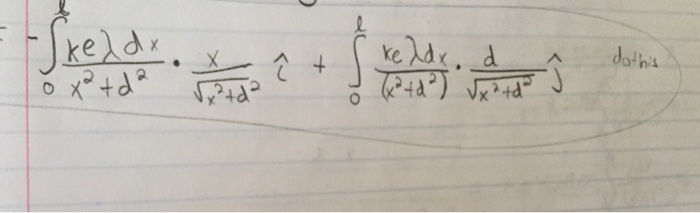 = - ∫₀^ℓ ke λ dx / x² + d² · x / √x² + d² î + ∫₀^ℓ ke λ dx / (x² + d²) · d / √x² + d² ĵ do this